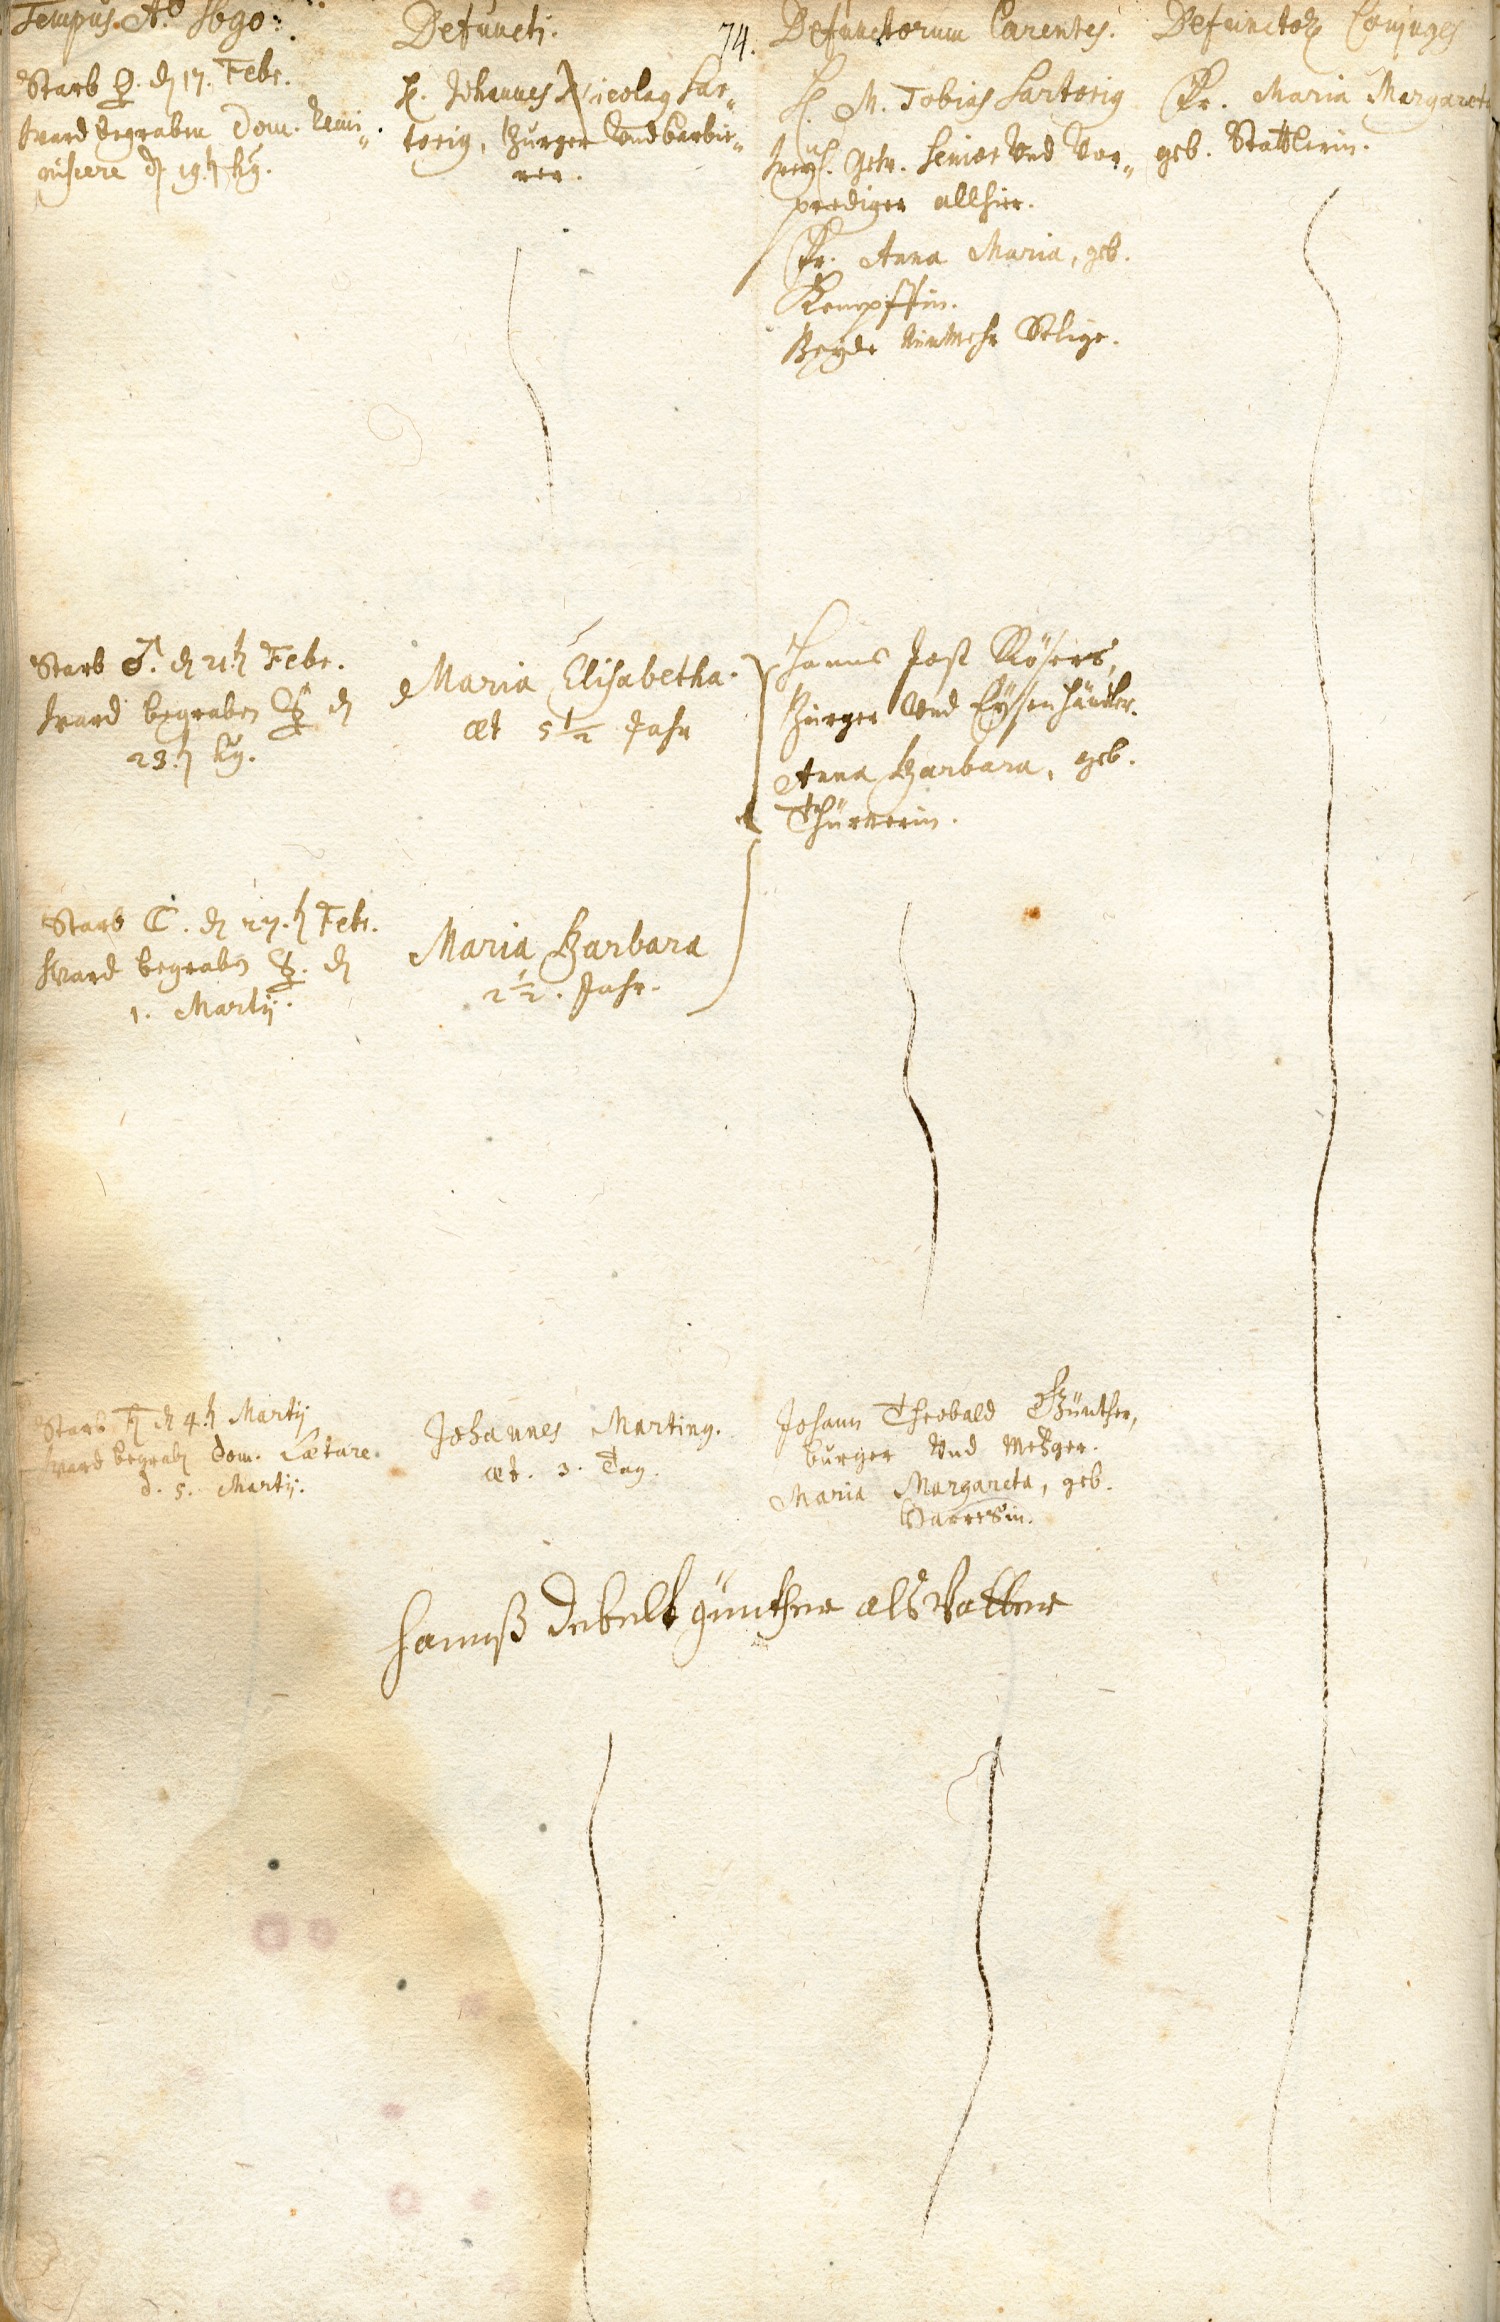 Tempus. Aº 1690.
Defuncti.
74.
Defunctorum Parentes.
Defunctoꝝ Conjuges
Starb ♀. dẽ 17. Febr.
ward begraben Dom. Remi„
niscere dẽ 19.ẽ hŷ.
H. Johannes Nicolaꝰ Sar„
toriꝰ, Burger Vnd Barbie„
rer.
H. M. Tobias Sartoriꝰ
gew. Senior Vnd Vor„
prediger allhier.
Fr. Anna Maria, geb.
Kempffin.
Beyde Nunmehr Selige.
Fr. Maria Margareta
geb. Stattlerin.
Starb ♂. dẽ 21.ẽ Febr.
ward begraben ☿ dẽ
23.ẽ hŷ.
Maria Elisabetha.
æt 5½ Jahr
Hanns Jost Rösers,
Burger Vnd Eysenhändler.
Anna Barbara, geb.
Thürnerin.
Starb ☾. dẽ 27.ẽ Febr.
ward begraben ☿. dẽ
1. Martij.
Maria Barbara
2½. Jahr.
Starb ♄ dẽ 4.ẽ Martij
ward begrabẽ Dom. Lætare.
d. 5. Martij.
Johannes Martinꝰ.
æt. 3. Tag.
Johann Theobald Günther,
burger Vnd Metzger.
Maria Margareta, geb.
hannß debelt günther als Vatter